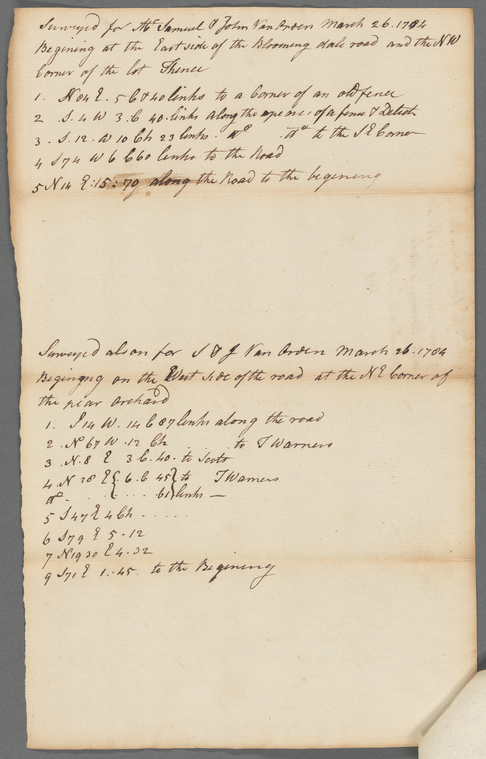 Surveyed for Mr Samuel & John Van Orden March 26. 1784
Begening at the East side of the Blooming dale road and the NW
Corner of the lot Thence
1. N 04 E. 5 C & 40 links to a Corner of an old fence
2. S. 4 W 3. C 40. links along the of a fence & Ditch
3. S. 12. W 10 Ch 23 links. Do Do to the SE Corner
4 S 74 W 6 C 60 links to the Road
5 N 14 E : 15 : 70 along the Road to the begening
Surveyed also for S & J Van Orden March 26. 1784
Begining on the West side of the road at the NE Corner of
the pear Orchard
1. S 14 W. 14 C 87 links along the road
2. No 67 W. 12 Ch . . . . to T Warners
3. N. 8 E 3. C. 40. to Scots
4. N 28 E { 6. C 45 } to T Warners
Do - . . . { . . . . 61 } links —
5 S 47 E 4 Ch . . . . .
6 S 79 E 5 . 12
7 N 19 30 E 4. 32
9 S 71 E 1. . 45. to the Begining